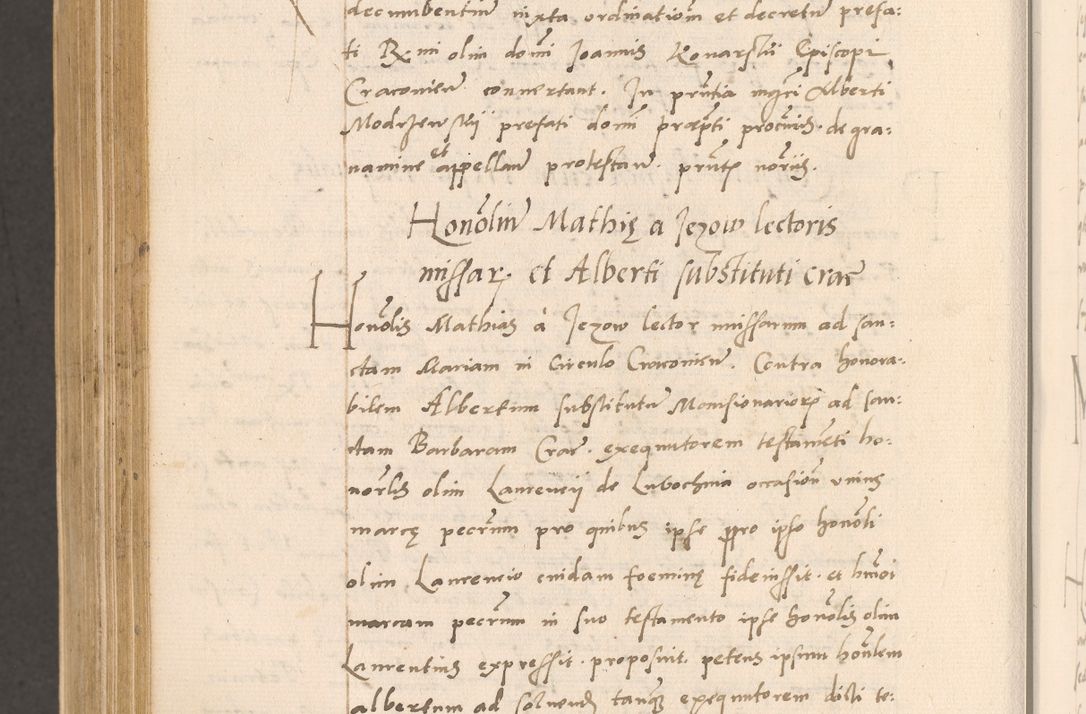 decumbentium iuxta ordinationem et decretum prefa:
ti Rmi olim domi Joannis Konarskii Episcopi
Cracovien convertant. In pntia mgri Alberti
Modrzewskii prefati domi praepti procuris. de gra:
vamine et appellan protestan. pntes noriis.
Honolium Mathię a Jezow lectoris
missar. et Alberti substituti crac
Honolis Mathias à Jezow lector missarum ad san:
ctam Mariam in Circulo Cracovien. Contra honora:
bilem Albertum substitutum Mansionariorum ad san:
ctam Barbaram Crac. exequutorem testamēti ho:
norlis olim Laurencii de Lubochnia occasion unius
marcę pecrum pro quibus ipse pro ipso honoli
olim Laurencio cuidam foeminę fideiussit. et hmoi
marcam pecrum in suo testamento ipse honolis olim
Laurentius expressit. proposuit. petens ipsum honlem
albertum ad solvend tanq exequutorem dicti te: